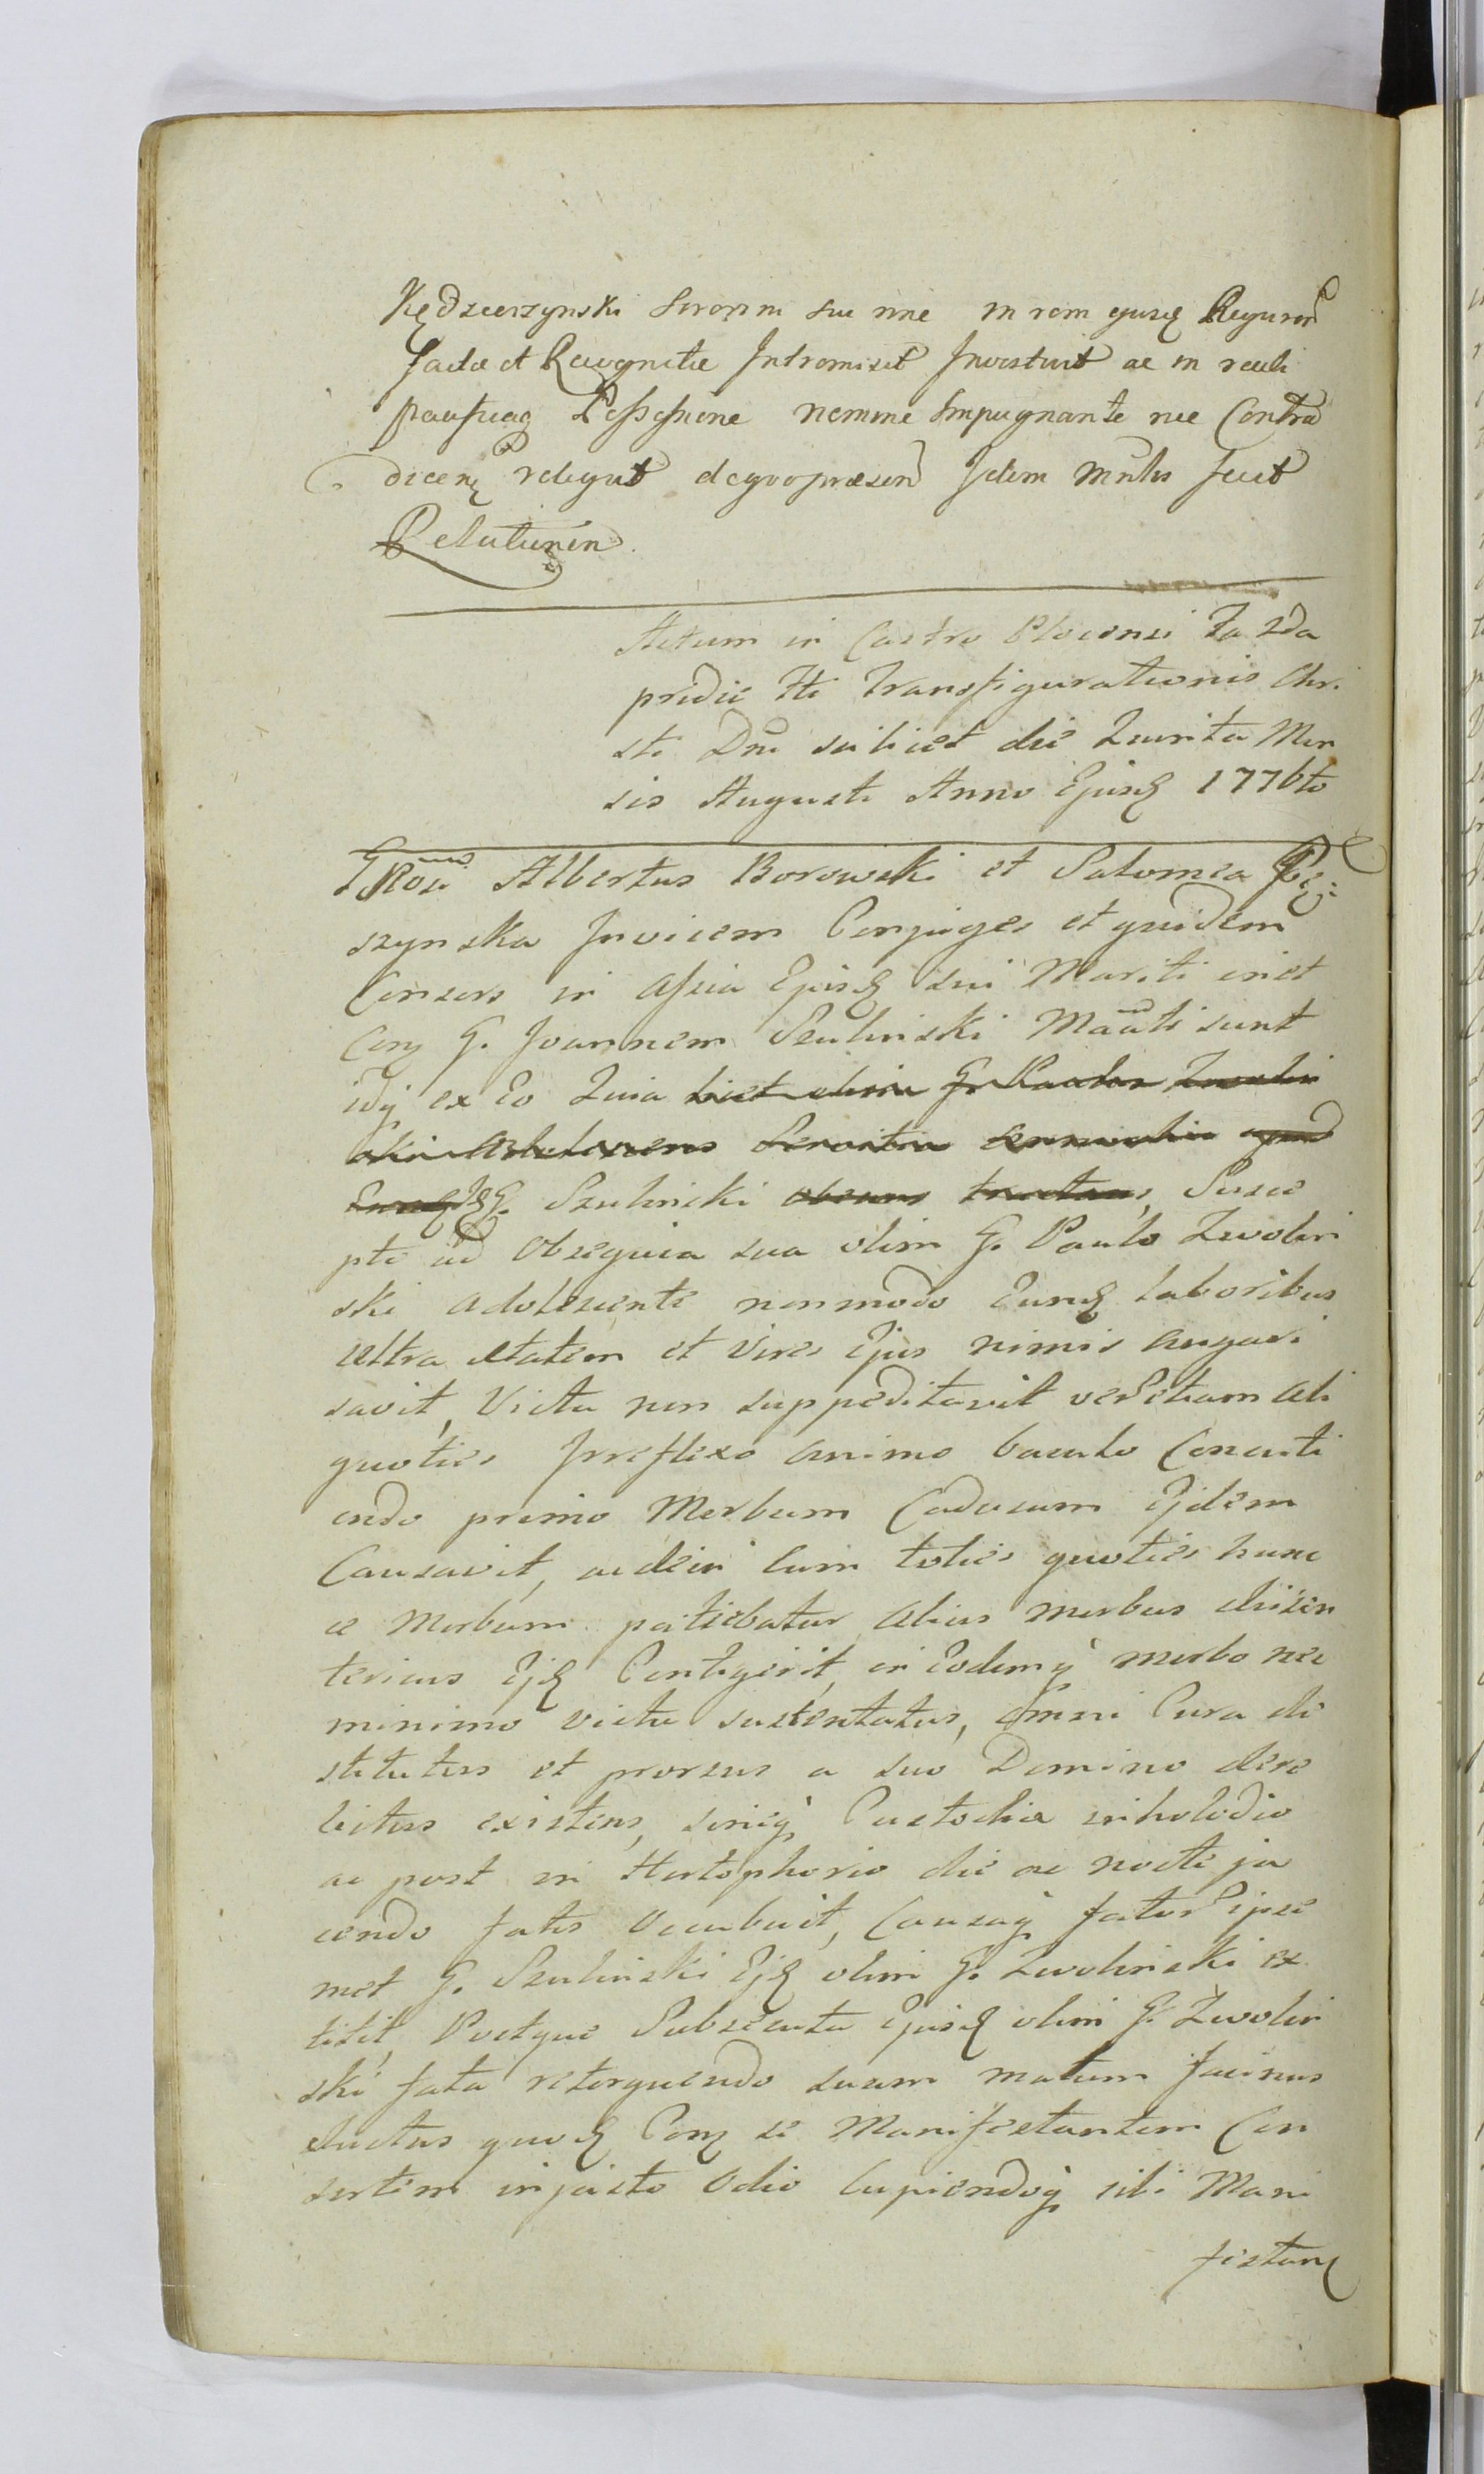 Kędzierzynski
factae et Recognitae Intromisit Investivit ac in reali
pacificaq Possessione nemine Impugnante nec Contra
dicenę reliquit de quo praesen Idem Mnlis fecit
Relationen.
Actum in Castro Plocensi
pridie Fti Transfigurationis Chri
sti Dni scilicet die Quinta Men
sis Augusti Anno Ejusd 1776to
GRosi Albertus Borowski et Salomea
szynska Invicem Conjuges et quidem
Consors in assia Ejusd sui Mariti
Con G. Joannem Szulinski Maati sunt
idq ex Eo Quia licet olim G. Paulus Zwolin
ski Adolescens Servitia apud
Eund G. Szulinski, Susce
pto ad Obsequia sua olim G. Paulo Zwolin
ski adolescente nonmodo Eund laboribus
ultra etatem et vires Ejus nimis angari
savit, Victu non suppeditavit ved etiam ali
quoties Irreflexo animo baculo Concuti
endo primo Morbum Caducum Ejdem
Causavit, ac dein cum toties quoties hunc
ce Morbum patiebatur alius morbus disen
tericus Ejd Contigerit, in Eodemq morbo nec
minimo victu sustentatus, omni Cura de
stitutus et prorsus a suo Domino dere
lictus existens, sineq Custodia
ac post in die ac nocte ja
cendo fatis occubuit, Causaq fator Ipse
met G. Szulinski Ejd olim G. Zwolinski ex
titit, Postque Subsecuta Ejusd olim G. Zwolin
ski fata retorquendo suum malum facinus
ductus quod Con se Manifestantem Con
sortem injusto Odio cupiendoq sibi Mani
festan